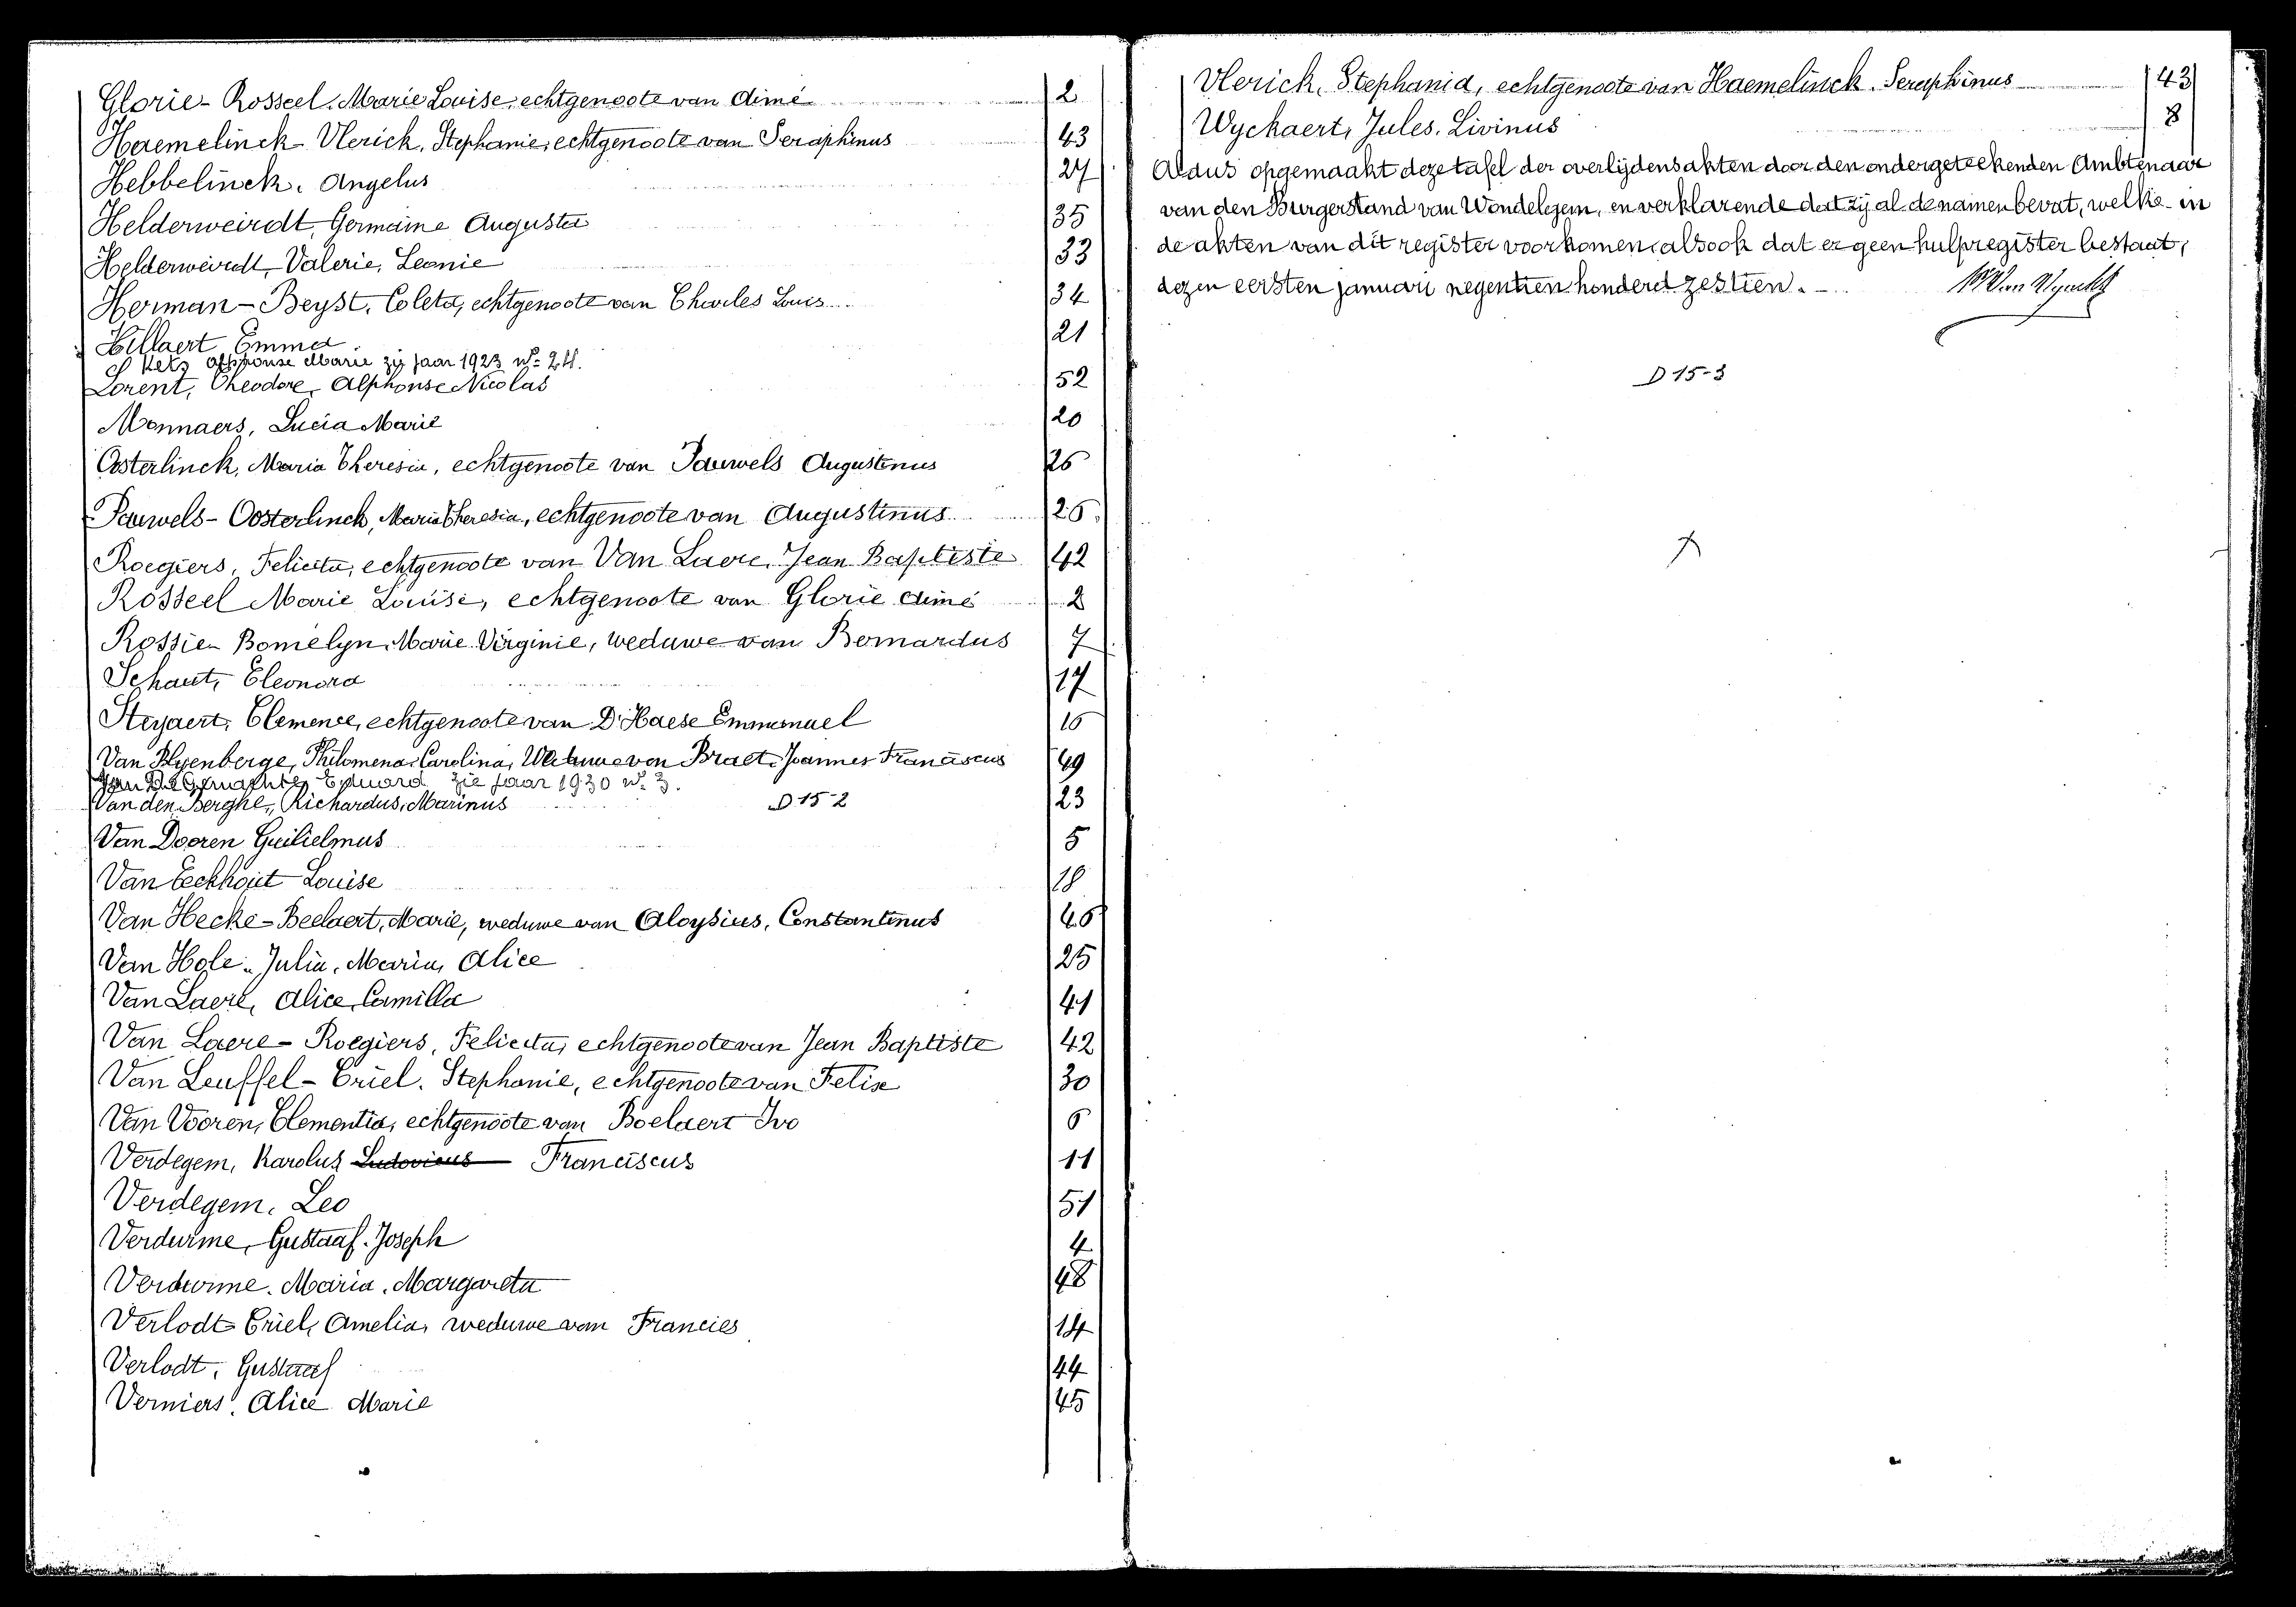 Glorie - Rosseel, Marie Louise, echtgenoote van Aimé 2
Haemelinck - Vlerick, Stephanie, echtgenoote van Seraphinus 43
Hebbelinck, Angelus 27
Helderweirdt, Germaine Augusta 35
Helderweirdt, Valerie, Leonie 33
Herman - Beyst, Coleta, echtgenoote van Charles Louis 34
Hillaert Emma 21
Kets Alphonse Marie zij Jaar 1923 n°= 24.
Lorent, Theodore, Alphonse Nicolas 52
Monnaers, Lucia Marie 20
Oosterlinck, Maria Theresia, echtgenoote van Pauwels Augustinus 26
Pauwels - Oosterlinck, Maria Theresia, echtgenoote van Augustinus 26
Roegiers, Felicita, echtgenoote van Van Laere, Jean Baptiste 42
Rosseel Marie Louise, echtgenoote van Glorie Aimé 2
Rossie - Bomelyn, Marie Virginie, weduwe van Bernardus 7
Schaut, Eleonora 17
Steyaert, Clemence, echtgenoote van D'Haese Emmanuel 16
Van Blyenberge, Philomena Carolina, Weduwe van Braet, Joannes Franciscus 49
Eduard zie Jaar 1930 n°. 3.
Van den Berghe, Richardus, Marinus D 15-2 23
Van Dooren Guilielmus 5
Van Eeckhout Louise 18
Van Hecke - Beelaert, Marie, weduwe van Aloysius, Constantinus 46
Van Hole, Julia, Maria, Alice 25
Van Laere, Alice, Camilla 41
Van Laere - Roegiers, Felicita, echtgenoote van Jean Baptiste 42
Van Leuffel - Criel, Stephanie, echtgenoote van Felix 30
Van Vooren, Clementia, echtgenoote van Boelaert Ivo 6
Verdegem, Karolus Ludovicus Franciscus 11
Verdegem, Leo 51
Verdurme, Gustaaf, Joseph 4
Verdurme, Maria, Margareta 48
Verlodt - Criel, Amelia, weduwe van Francies 14
Verlodt, Gustaaf 44
Verniers, Alice Marie 45
Vlerick, Stephania, echtgenoote van Haemelinck, Seraphinus 43
Wyckaert, Jules, Livinus 8
Aldus opgemaakt deze tafel der overlijdensakten door den ondergeteekenden Ambtenaar
van den Burgerstand van Wondelgem, en verklarende dat zij al de namen bevat, welke in
de akten van dit register voorkomen, alsook dat er geen hulpregister bestaat,
dezen eersten januari negentien honderd zestien.
D 15-3